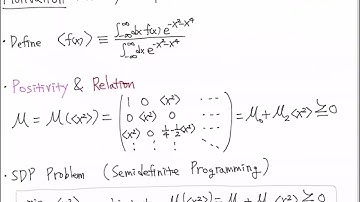 · Define ⟨f(x)⟩ ≡ ∫_{-∞}^{∞}dx f(x) e^{-x²-x⁴} / ∫_{-∞}^{∞}dx e^{-x²-x⁴}
· Positivity & Relation
M = M(⟨x²⟩) = ( 1 0 ⟨x²⟩ ⋯ ; 0 ⟨x²⟩ 0 ⋯ ; ⟨x²⟩ 0 1/4-1/2⟨x²⟩ ⋯ ; ⋮ ⋮ ⋮ ⋱ ) = M₀ + M₂⟨x²⟩ ≧ 0
· SDP Problem (Semidefinite Programming)